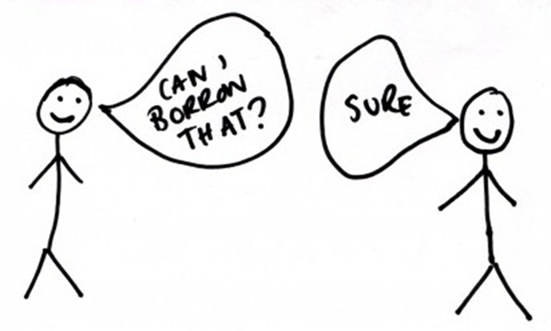 CAN I
BORROW
THAT?
SURE